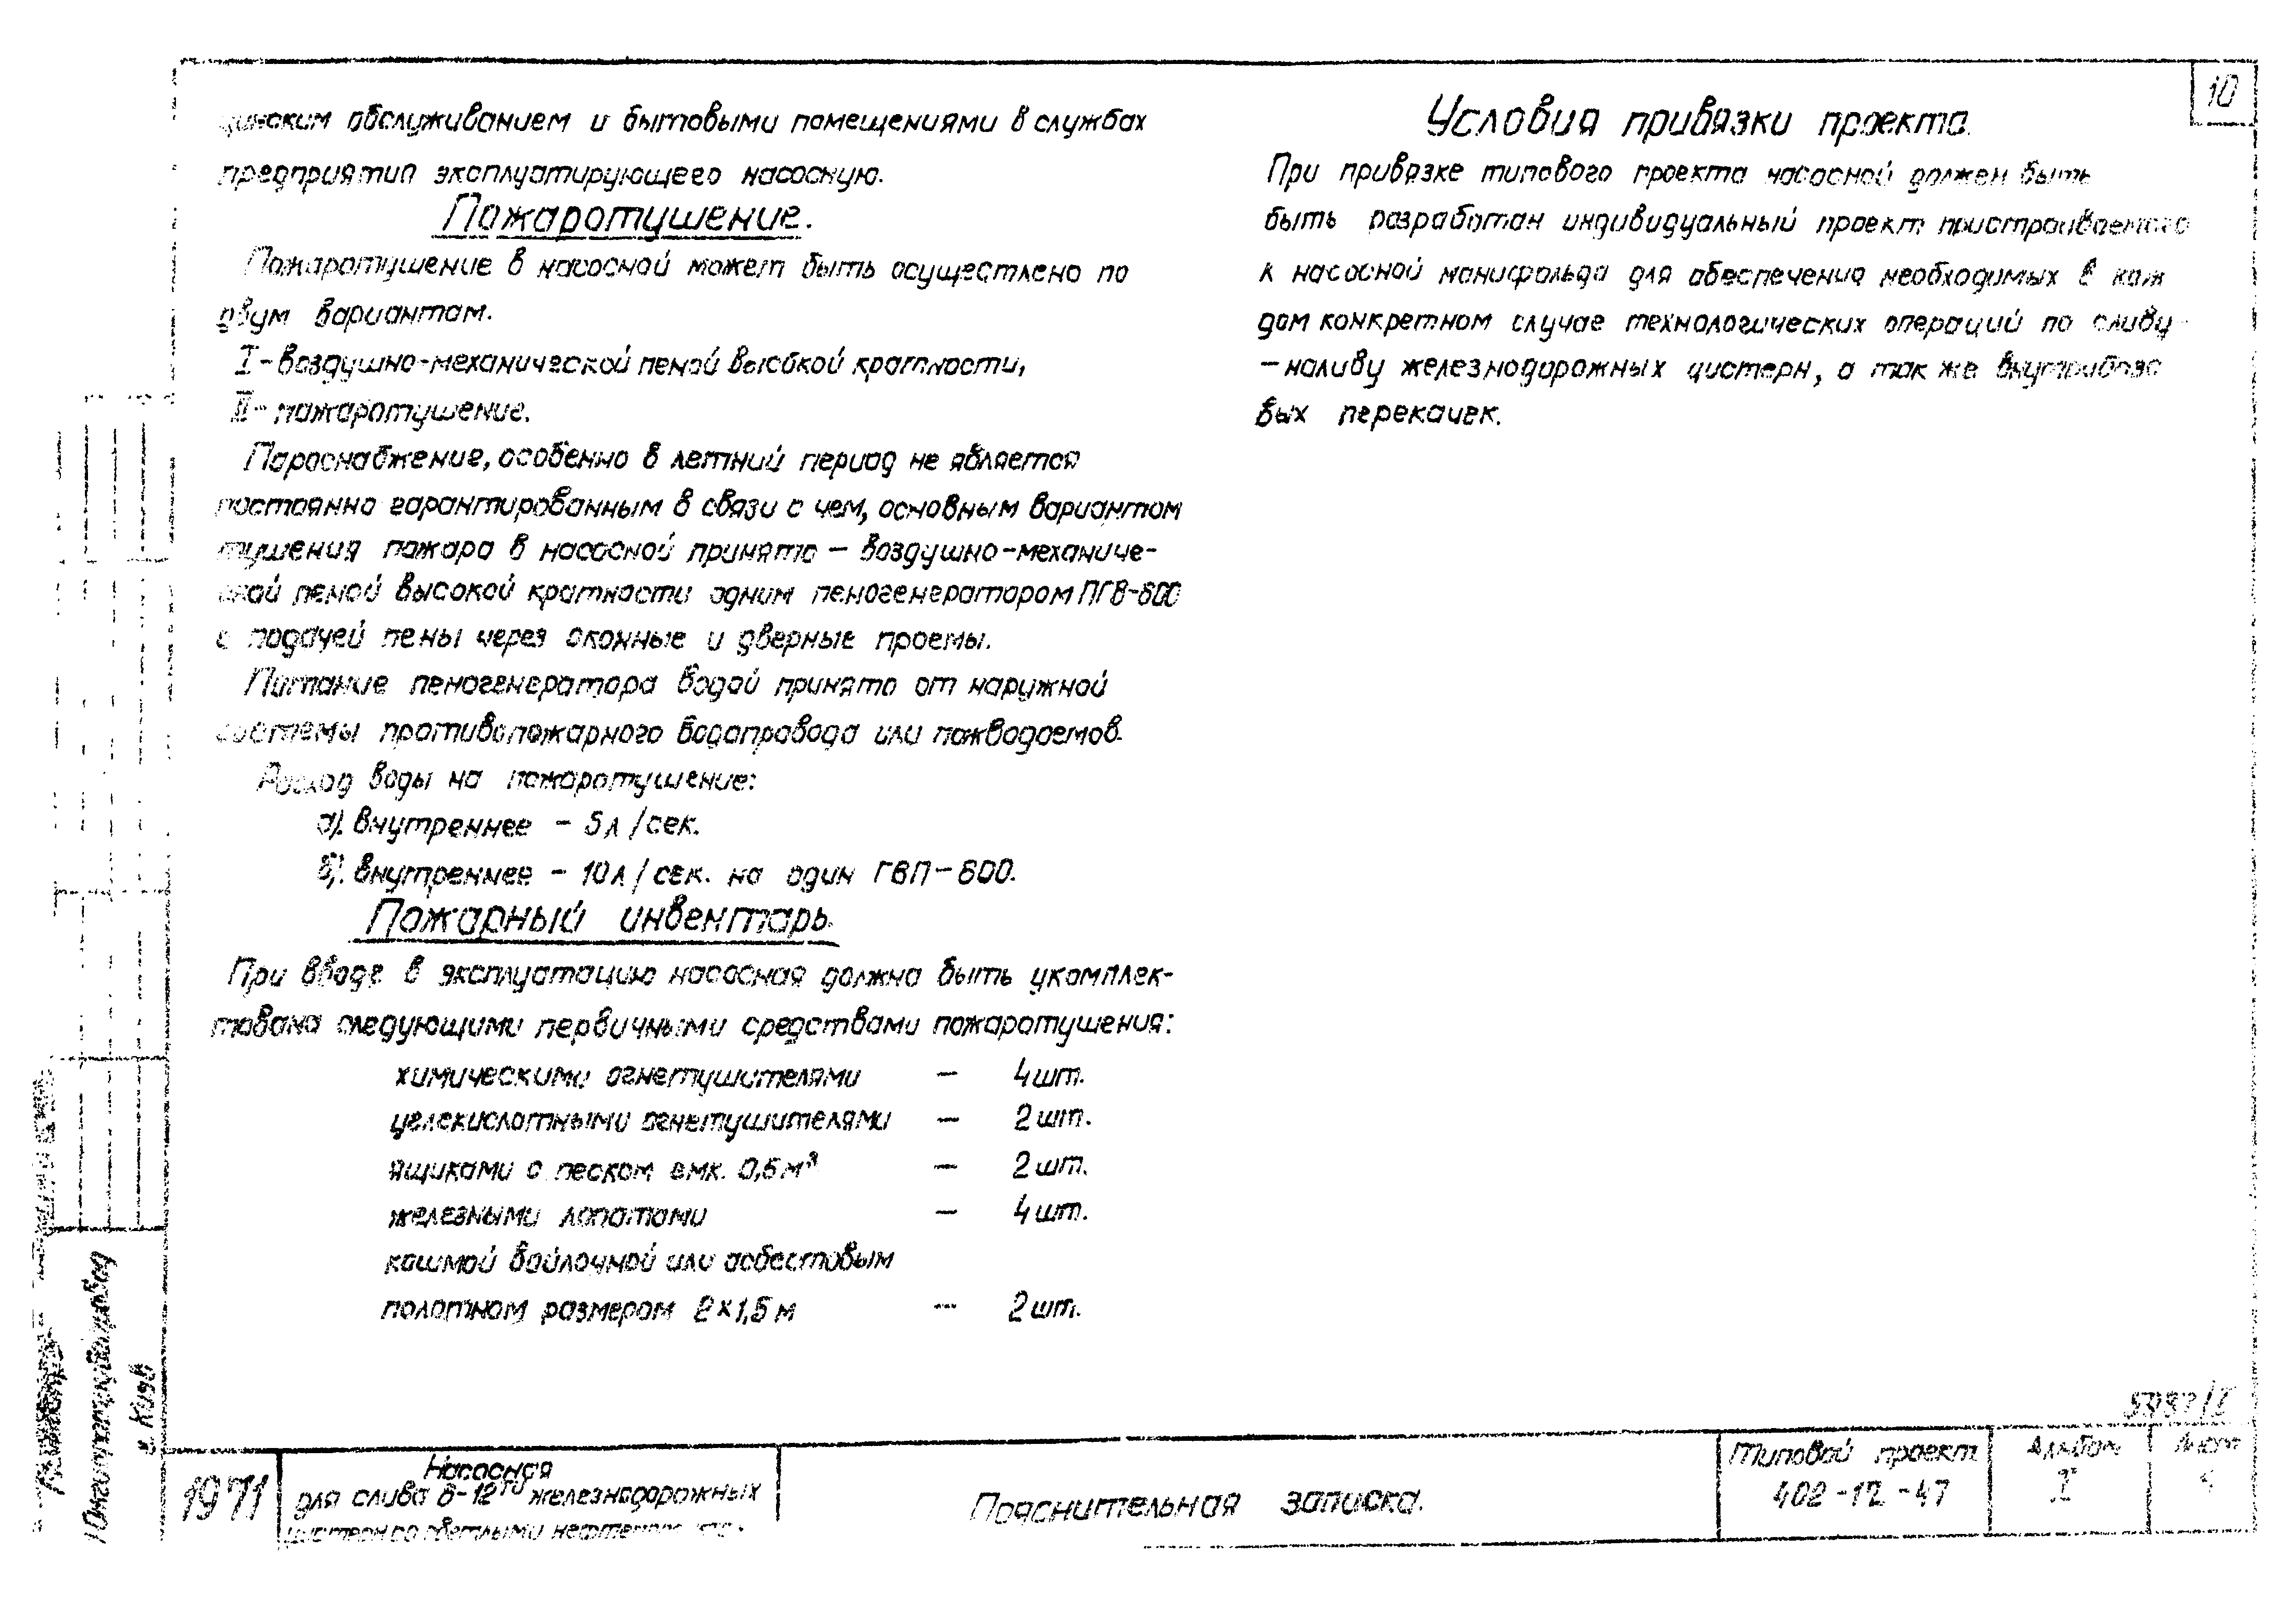 обслуживанием и бытовыми помещениями в службах
предприятий эксплуатирующего насосную.
Пожаротушение.
Пожаротушение в насосной может быть осуществлено по
двум вариантам.
I-воздушно-механической пеной высокой кратности,
II- пожаротушение.
Пароснабжение, особенно в летний период не является
постоянно гарантированным в связи с чем, основным вариантом
тушения пожара в насосной принято - воздушно-механиче-
ской пеной высокой кратности одним пеногенератором ПГВ-600
с подачей пены через оконные и дверные проемы.
Питание пеногенератора водой принято от наружной
системы противопожарного водопровода или пожводоемов.
Расход воды на пожаротушение:
а). внутреннее - 5л/сек.
б). внутреннее - 10л/сек. на один ГВП-600.
Пожарный инвентарь.
При вводе в эксплуатацию насосная должна быть укомплек-
тована следующими первичными средствами пожаротушения:
химическими огнетушителями - 4шт.
целекислотными огнетушителями - 2шт.
ящиками с песком емк. 0,5м³ - 2шт.
железными лопатами - 4шт.
кошмой войлочной или асбестовым
полотном размером 2×1,5м - 2шт.
10
Условия привязки проекта.
При привязке типового проекта насосной должен быть
быть разработан индивидуальный проект пристраиваемого
к насосной манифольда для обеспечения необходимых в каж
дом конкретном случае технологических операций по сливу-
-наливу железнодорожных цистерн, а так же внутрибазо
вых перекачек.
Южгипронефтепровод
г. Киев
1971
Насосная
для слива 8-12ти железнодорожных
цистерн со светлыми
Пояснительная записка.
Типовой проект
402-12-47
Альбом
I
Лист